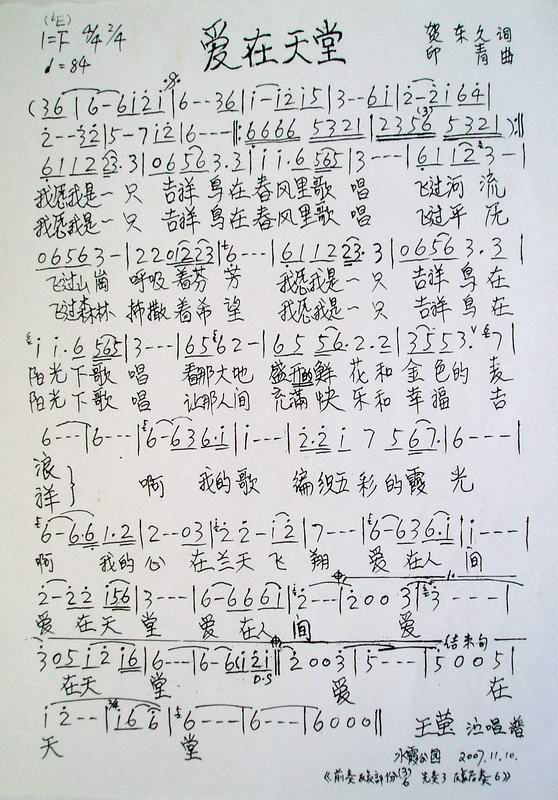 (♭E)
1=F 4/4 3/4
♩=84
爱在天堂
贺东久 词
印青 曲
(36 | 6-6121 | 6--36 | i-i2i5 | 3--6i | 2-2i64 |
2--32 | 5-7i2 | 6--- ‖: 6666 5321 | 2356 5321 ):‖
6112 23·3 | 0656 3·3 | i i·6 565 | 3--- | 61123- |
我愿我是一只 吉祥鸟在春风里歌唱 飞过河流
我愿我是一只 吉祥鸟在春风里歌唱 飞过平原
06563- | 2201223 | 6--- | 6112 23·3 | 0656 3·3 |
飞过山岗 呼吸着芬芳 我愿我是一只 吉祥鸟在
飞过森林 播撒着希望 我愿我是一只 吉祥鸟在
i i·6 565 | 3--- | 6562- | 65 56·2·2 | 3553· 7 |
阳光下歌唱 看那大地 盛开的鲜花和金色的麦
阳光下歌唱 让那人间 充满快乐和幸福 吉
6--- | 6--- | 6-636·i | i--- | 2·2 i 7 567· | 6--- |
浪
祥 } 啊 我的歌 编织五彩的霞光
6-6·6 1·2 | 2--03 | 2 2-i2 | 7--- | 6-636·i | i--- |
啊 我的心 在兰天飞翔 爱在人间
2-22 i56 | 3--- | 6-666i | 2--- | 2003 | 3--- |
爱在天堂 爱在人间 爱
结束句
305i2 i6 | 6--- | 6-6i2i ‖ 2003 | 5--- | 5005 |
D·S
在天堂 爱 在
i2-- | i66 | 6--- | 6--- | 6000 ‖
天 堂
王莹 泣唱谱
水霞公园 2007.11.10.